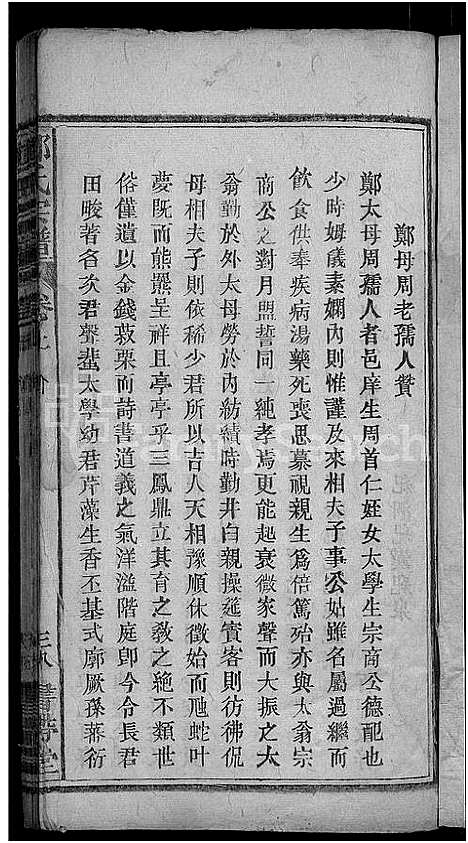 鄭母周老孺人贊
鄭太母周孺人者邑庠生周首仁姪女太學生宗商公德配也
少時姆儀素嫻內則惟謹及來相夫子事公姑雖名屬過繼而
飲食供奉疾病湯藥死喪思慕視親生爲倍篤殆亦與太翁宗
商公之對月盟誓同一純孝焉更能起衰微家聲而大振之大
翁勤於外太母勞於內紡績時勤井白親操筵賓客則彷彿侃
母相夫子則依稀少君所以吉人天相豫順休徵始而虺蛇叶
夢既而熊羆呈祥且亭亭乎三鳳鼎立其育之敎之絶不類世
俗僅遺以金錢菽栗而詩書道義之氣洋溢階庭卽今令長君
田畯著名次君聲蜚太學幼君芹藻生香丕基式廓厥孫蕃衍
卷上
三八